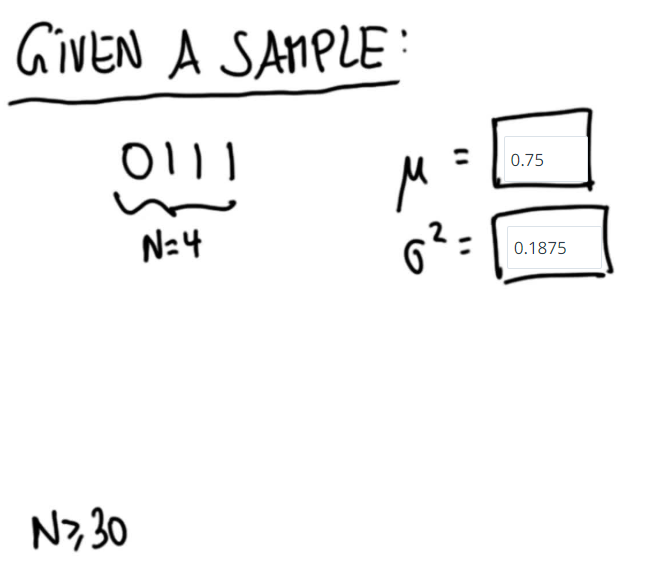 GIVEN A SAMPLE:
0111
N=4
μ = 0.75
σ² = 0.1875
N≥30